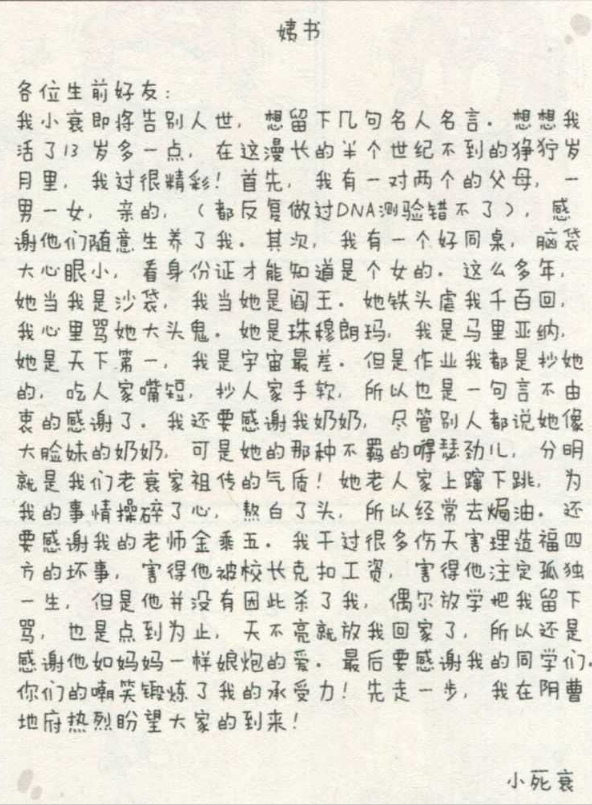 姨书
各位生前好友：
我小衰即将告别人世，想留下几句名人名言．想想我
活了13岁多一点，在这漫长的半个世纪不到的狰狞岁
月里，我过很精彩！首先，我有一对两个的父母，一
男一女，亲的，（都反复做过DNA测验错不了），感
谢他们随意生养了我．其次，我有一个好同桌，脑袋
大心眼小，看身份证才能知道是个女的．这么多年，
她当我是沙袋，我当她是阎王．她铁头虐我千百回，
我心里骂她大头鬼．她是珠穆朗玛，我是马里亚纳，
她是天下第一，我是宇宙最差．但是作业我都是抄她
的，吃人家嘴短，抄人家手软，所以也是一句言不由
衷的感谢了．我还要感谢我奶奶，尽管别人都说她像
大脸妹的奶奶，可是她的那种不羁的嘚瑟劲儿，分明
就是我们老衰家祖传的气质！她老人家上蹿下跳，为
我的事情操碎了心，熬白了头，所以经常去焗油．还
要感谢我的老师金乘五．我干过很多伤天害理造福四
方的坏事，害得他被校长克扣工资，害得他注定孤独
一生，但是他并没有因此杀了我，偶尔放学把我留下
骂，也是点到为止，天不亮就放我回家了，所以还是
感谢他如妈妈一样娘炮的爱．最后要感谢我的同学们．
你们的嘲笑锻炼了我的承受力！先走一步，我在阴曹
地府热烈盼望大家的到来！
小死衰